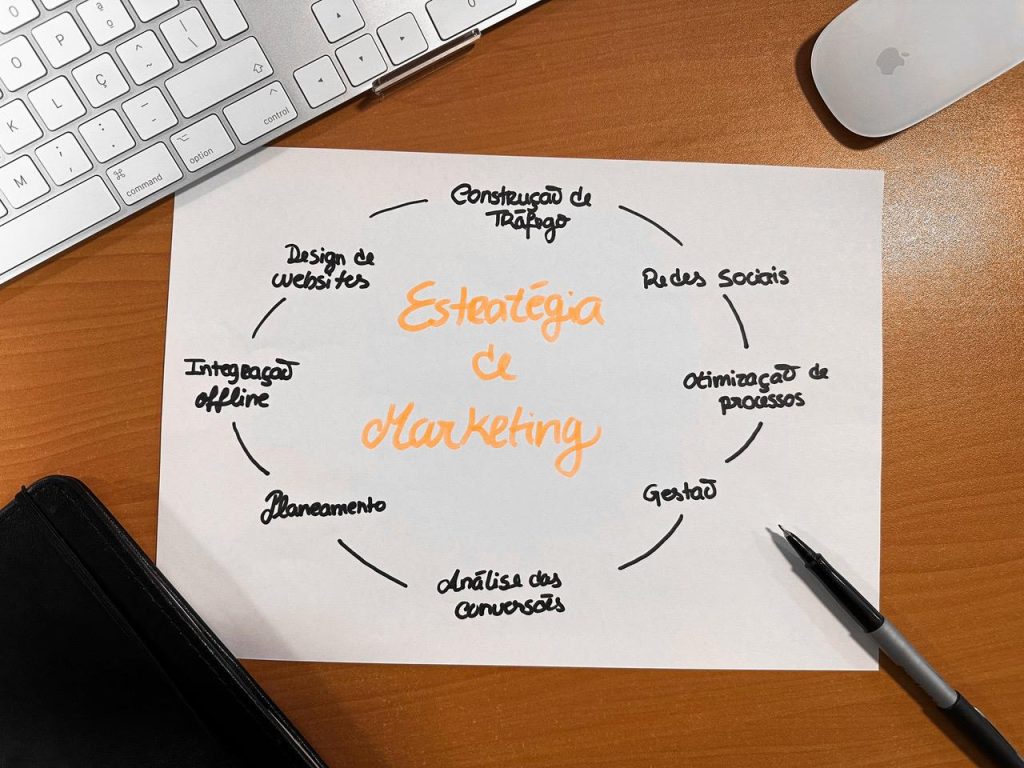 O
P
ª
º
^
~
|
\
K
L
Ç
:
.
_
-
^
control
M
;
,
⌘
command
⌥
option
Construção de
Tráfego
Design de
websites
Redes Sociais
Estratégia
de
Marketing
Integração
offline
Otimização de
processos
Planeamento
Gestão
Análise das
conversões